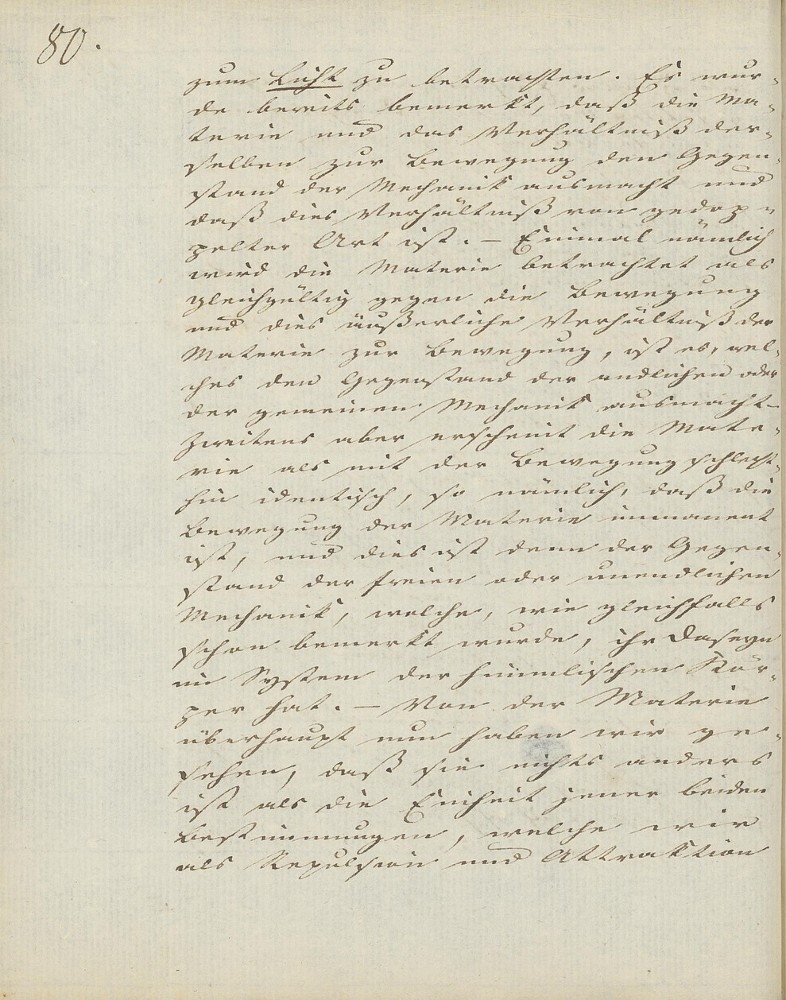 80.
zum Licht zu betrachten. Es wur-
de bereits bemerkt, daß die Ma-
terie und das Verhältniß der-
selben zur Bewegung den Gegen-
stand der Mechanik ausmacht und
daß dies Verhältniß von gedop-
pelter Art ist. — Einmal nämlich
wird die Materie betrachtet als
gleichgültig gegen die Bewegung
und dies äußerliche Verhältniß der
Materie zur Bewegung, ist es, wel-
ches den Gegenstand der endlichen oder
der gemeinen Mechanik ausmacht.
Zweitens aber erscheint die Mate-
rie als mit der Bewegung schlecht-
hin identisch, so nämlich, daß die
Bewegung der Materie immanent
ist, und dies ist denn der Gegen-
stand der freien oder unendlichen
Mechanik, welche, wie gleichfalls
schon bemerkt wurde, ihr Daseyn
im System der himmlischen Kör-
per hat. — Von der Materie
überhaupt nun haben wir ge-
sehen, daß sie nichts anders
ist als die Einheit jener beiden
Bestimmungen, welche wir
als Repulsion und Attraktion